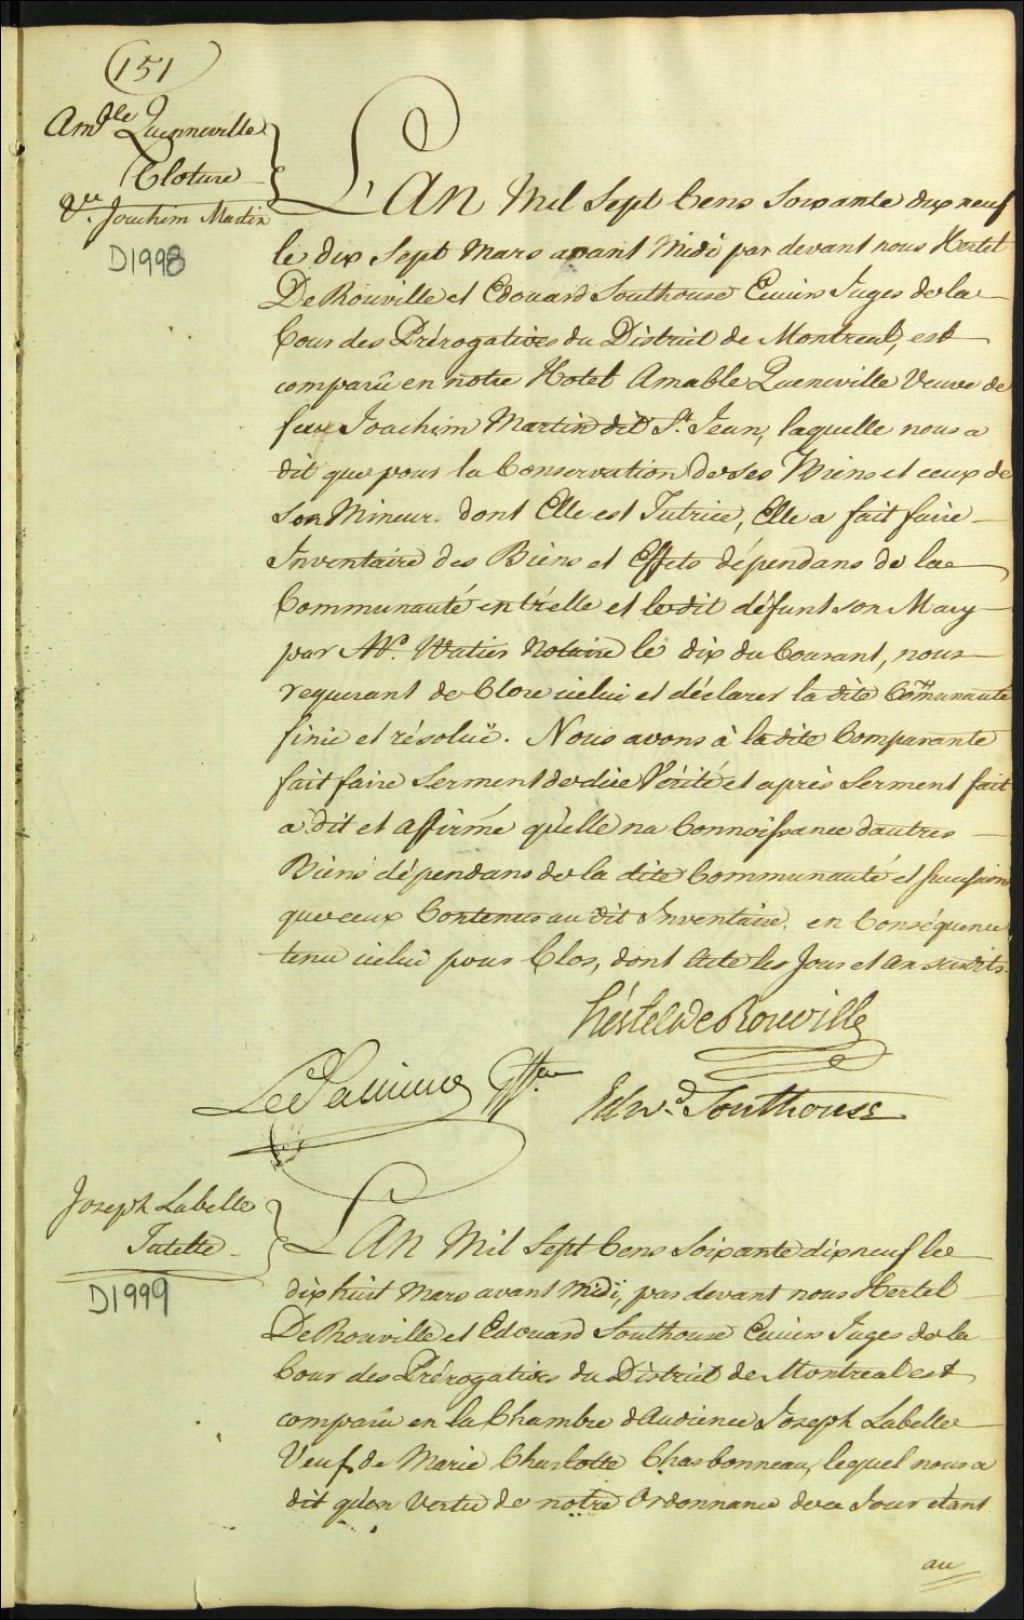 151
Amble Quenneville
Cloture
Ve. Joachim Martin
D1998
L'AN Mil Sept Cens Soixante dix neuf
le dix Sept Mars avant Midi par devant nous Hertel
De Rouville et Edouard Southouse Ecuiers Juges de la
Cour des Prérogatives du District de Montreal, est
comparûe en notre Hotel Amable Queneville Veuve de
feu Joachim Martin dit St. Jean, laquelle nous a
dit que pour la Conservation de ses Biens et ceux de
son Mineur dont Elle est Tutrice, Elle a fait faire
Inventaire des Biens et Effets dépendans de la
Communauté entr'elle et le dit défunt son Mary
par Me. Watier Notaire le dix du Courant, nous
requerant de Clore icelui et déclarer la dite Communauté
finie et résoluë. Nous avons à la dite Comparante
fait faire Serment de dire Vérité et après Serment fait
a dit et affirmé qu'elle na Connoissance dautres
Biens dépendans de la dite Communauté et succession
que ceux Contenus au dit Inventaire, en Conséquence
tenu icelui pour Clos, dont Acte les Jour et an susdits.
Hértel De Rouville
LePallieur Gffier
Edwd. Southouse
Joseph Labelle
Tutelle
D1999
L'AN Mil Sept Cens Soixante dix neuf le
dix huit Mars avant Midi, par devant nous Hertel
De Rouville et Edouard Southouse Ecuiers Juges de la
Cour des Prérogatives du District de Montreal est
comparu en la Chambre d'Audience Joseph Labelle
Veuf de Marie Charlotte Charbonneau, lequel nous a
dit qu'en Vertu de notre Ordonnance de ce Jour étant
au